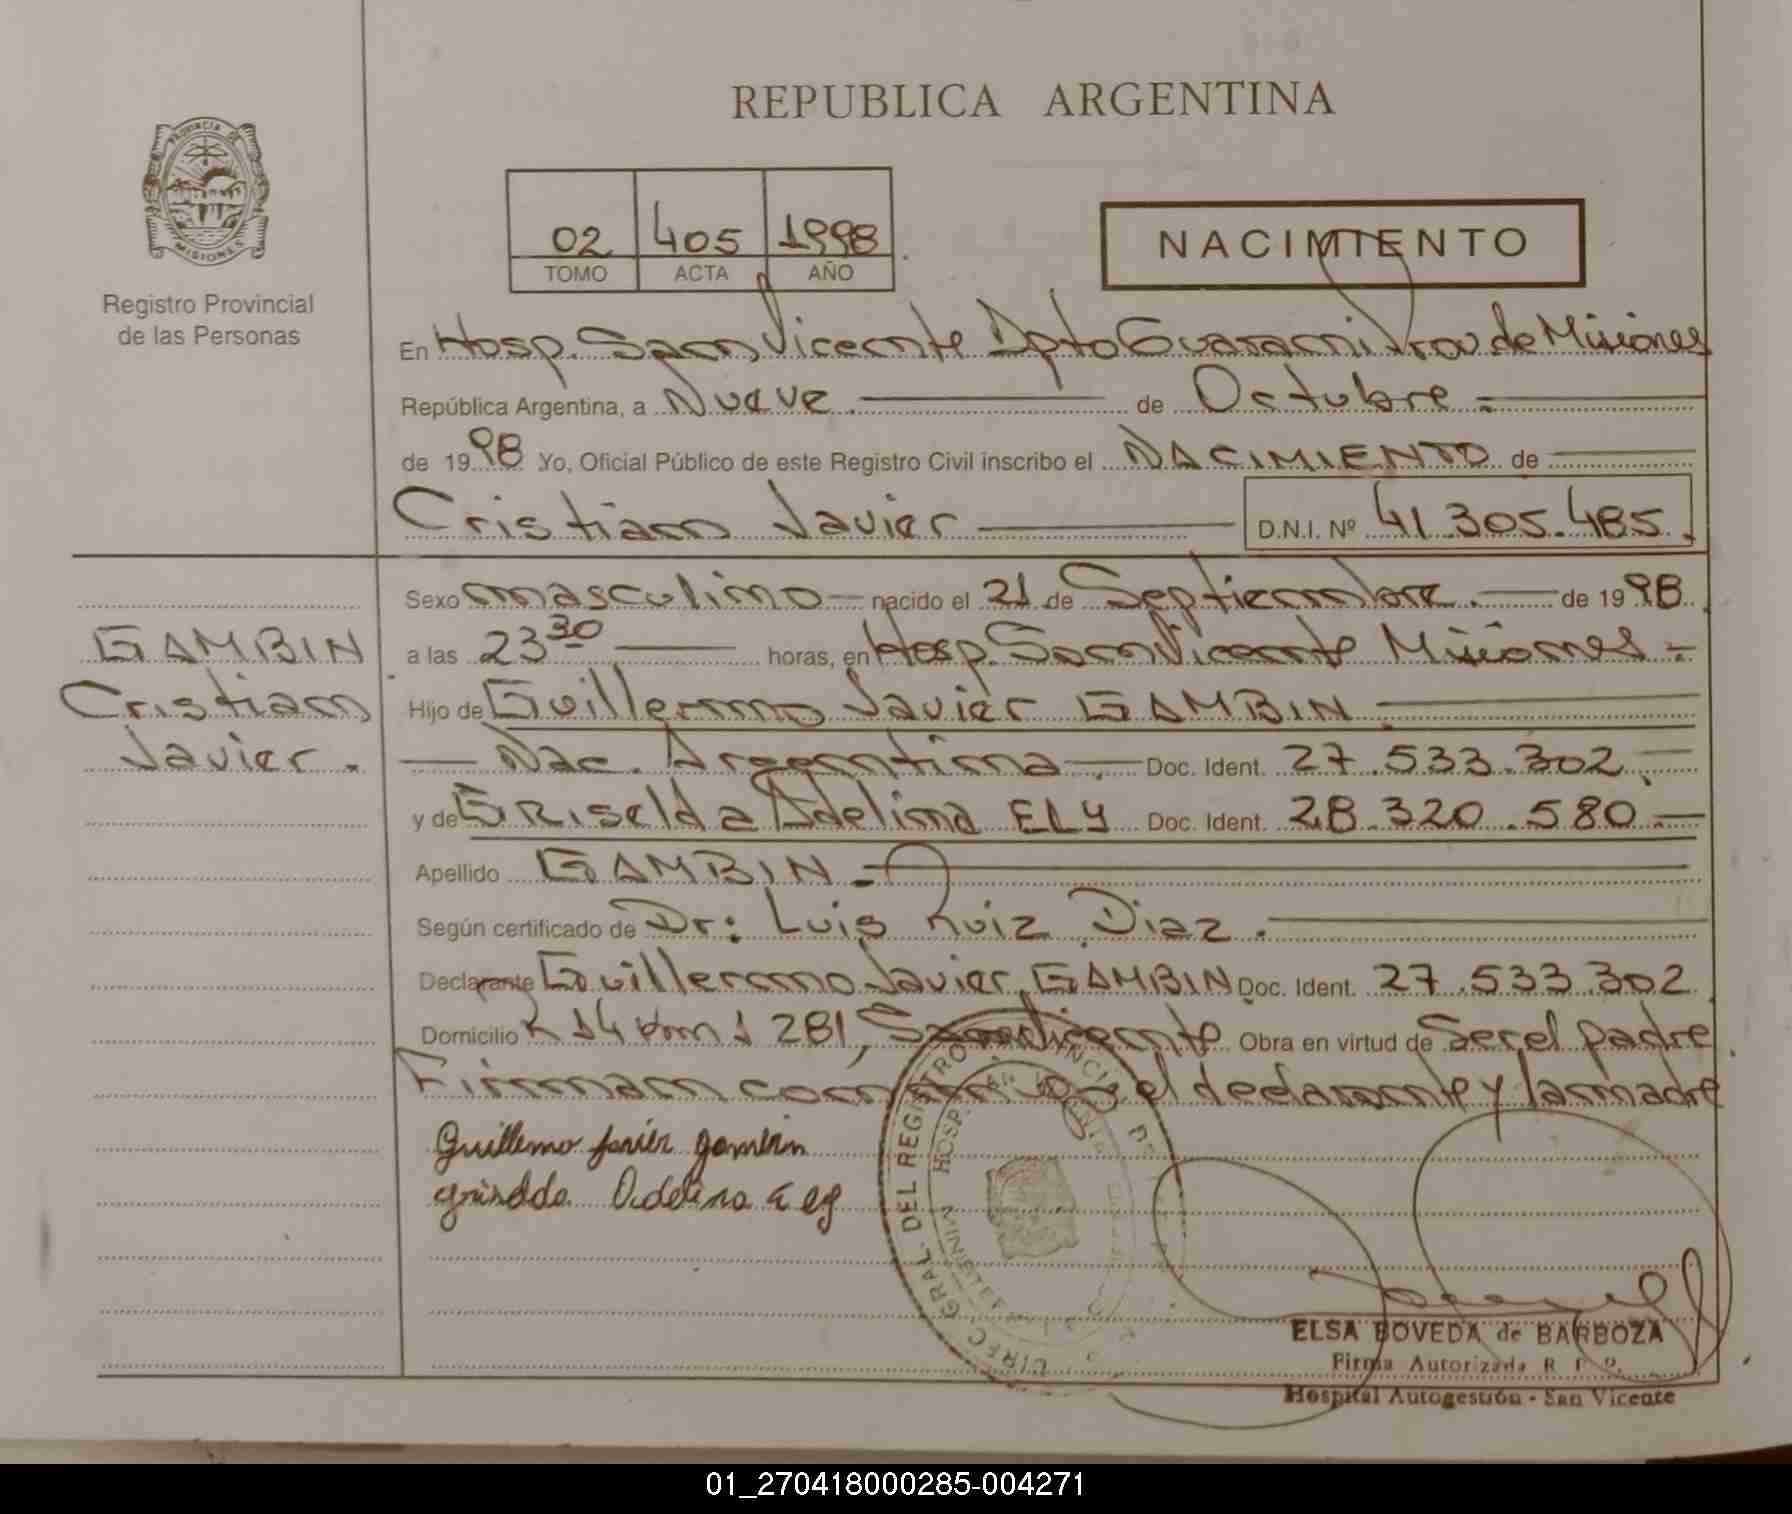 REPUBLICA ARGENTINA
PROVINCIA DE
MISIONES
Registro Provincial
de las Personas
02 405 1998
TOMO ACTA AÑO
NACIMIENTO
En Hosp. San Vicente Dpto Guarani Prov de Misiones
República Argentina, a Nueve de Octubre
de 1998 Yo, Oficial Público de este Registro Civil inscribo el NACIMIENTO de
Cristian Javier D.N.I. Nº 41.305.485.
Sexo masculino nacido el 21 de Septiembre. de 1998
a las 23 30 horas, en Hosp. San Vicente Misiones
GAMBIN
Cristian
Javier.
Hijo de Guillermo Javier GAMBIN
Nac. Argentina Doc. Ident. 27.533.302
y de GRiselda Adelina ELY Doc. Ident. 28.320.580
Apellido GAMBIN
Según certificado de Dr: Luis Ruiz Diaz.
Declarante Guillermo Javier GAMBIN Doc. Ident. 27.533.302
Domicilio R 14 Km 1281, San Vicente Obra en virtud de Ser el padre
Firman el declarante y la madre
Guillermo Javier Gambin
Griselda Adelina Ely
DIREC. GRAL. DEL REGISTRO PROVINCIAL
HOSP.
ELSA BOVEDA de BARBOZA
Firma Autorizada R. P. P.
Hospital Autogestión - San Vicente
01_270418000285-004271